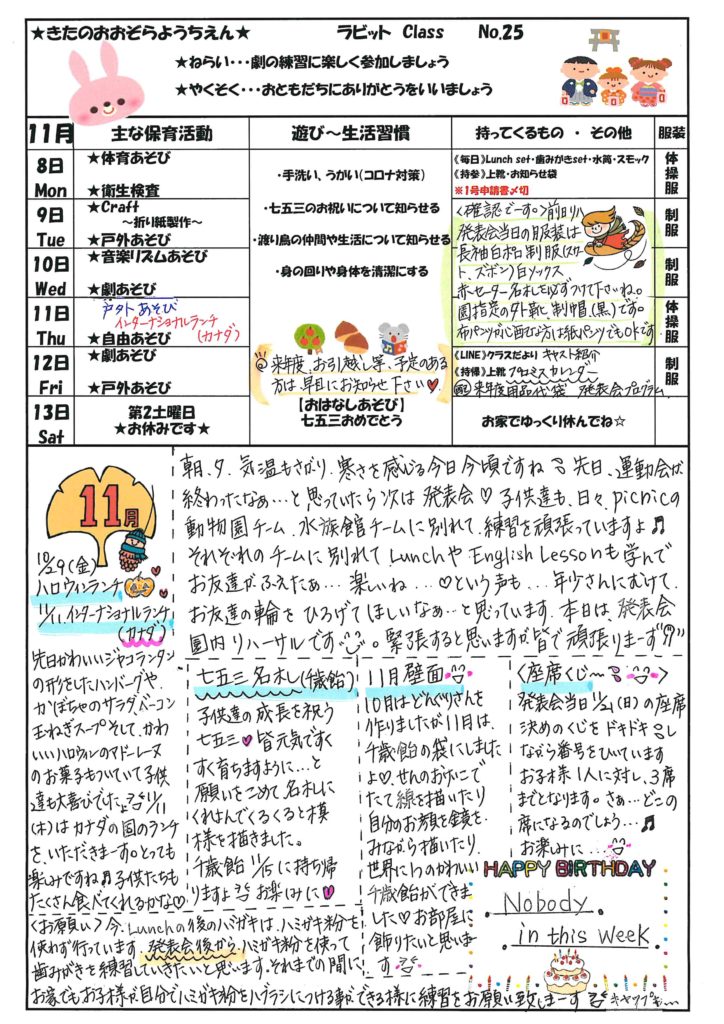 ★きたのおおぞらようちえん★ ラビット Class No.25
★ねらい・・・劇の練習に楽しく参加しましょう
★やくそく・・・おともだちにありがとうをいいましょう
11月 主な保育活動 遊び～生活習慣 持ってくるもの ・ その他 服装
8日 Mon
★体育あそび
★衛生検査
9日 Tue
★Craft
～折り紙製作～
★戸外あそび
10日 Wed
★音楽リズムあそび
★劇あそび
11日 Thu
戸外あそび
インターナショナルランチ
(カナダ)
★自由あそび
12日 Fri
★劇あそび
★戸外あそび
13日 Sat
第2土曜日
★お休みです★
・手洗い、うがい(コロナ対策)
・七五三のお祝いについて知らせる
・渡り鳥の仲間や生活について知らせる
・身の回りや身体を清潔にする
◎来年度、お引越し等、予定のある
方は早目にお知らせ下さい♥
【おはなしあそび】
七五三おめでとう
《毎日》Lunch set・歯みがきset・水筒・スモック
《持参》上靴・お知らせ袋
※1号申請書〆切
〈確認でーす。〉前日リハ
発表会当日の服装は
長袖白ポロ、制服(スカー
ト、ズボン)白ソックス
赤セーター名札を必ずつけて下さいね。
園指定の外靴に制帽、(黒)です。
布パンツが心配な方は紙パンツでもOKです
《LINE》クラスだより キャスト紹介
《持帰》上靴 プロミスカレンダー
来年度用品代袋 発表会プログラム
お家でゆっくり休んでね☆
体操服
制服
制服
体操服
制服
朝、夕、気温もさがり、寒さを感じる今日今頃ですね 先日、運動会が
終わったなぁ…と思っていたら次は 発表会♡ 子供達も、日々、picnicの
動物園チーム、水族館チームに別れて、練習を頑張っていますよ♫
それぞれのチームに別れて、LunchやEnglish Lessonも学んで
お友達がふえたぁ… 楽しいね…♡という声も… 年少さんにむけて、
お友達の輪をひろげてほしいなぁ…と思っています。本日は、発表会
園内リハーサルです。緊張すると思いますが皆で頑張りまーす
11月
10/29(金)
ハロウィンランチ
11/11、インターナショナルランチ
(カナダ)
先日かわいいジャコランタン
の形をしたハンバーグや、
かぼちゃのサラダ、バーコン
玉ねぎスープそして、かわ
いいハロウィンのマドレーヌ
のお菓子もついていて子供
達も大喜びでした♪ 11/11
(木)はカナダの国のランチ
を、いただきまーす。とっても
楽しみですね♫子供たちも
たくさん食べてくれるかな♡
七五三名札(千歳飴)
子供達の成長を祝う
七五三♥皆元気ですく
すく育ちますように…と
願いをこめて、名札に
くれよんでくるくると模
様を描きました。
千歳飴 11/15に持ち帰
ります お楽しみに♥
11月壁面
10月はどんぐりさんを
作りましたが11月は、
千歳飴の袋にしました
よ♡せんのおけいこで
たて線を描いたり
自分のお顔を鏡を、
みながら描いたり、
世界に1つのかわいい
千歳飴ができま
した♡お部屋に
飾りたいと思いま
す
〈座席くじ～〉
発表会当日11/21(日)の座席
決めのくじをドキドキし
ながら番号をひいています
お子様1人に対し、3席
までとなります。さぁ…どこの
席になるのでしょう…♫
お楽しみに…
HAPPY BIRTHDAY
Nobody
in this week
〈お願い〉今、Lunchの後のハミガキは、ハミガキ粉を
使わず行っています。発表会後から、ハミガキ粉を使って
歯みがきを練習していきたいと思います。それまでの間に
お家でもお子様が自分でハミガキ粉をハブラシにつける事ができる様に練習をお願い致しまーす